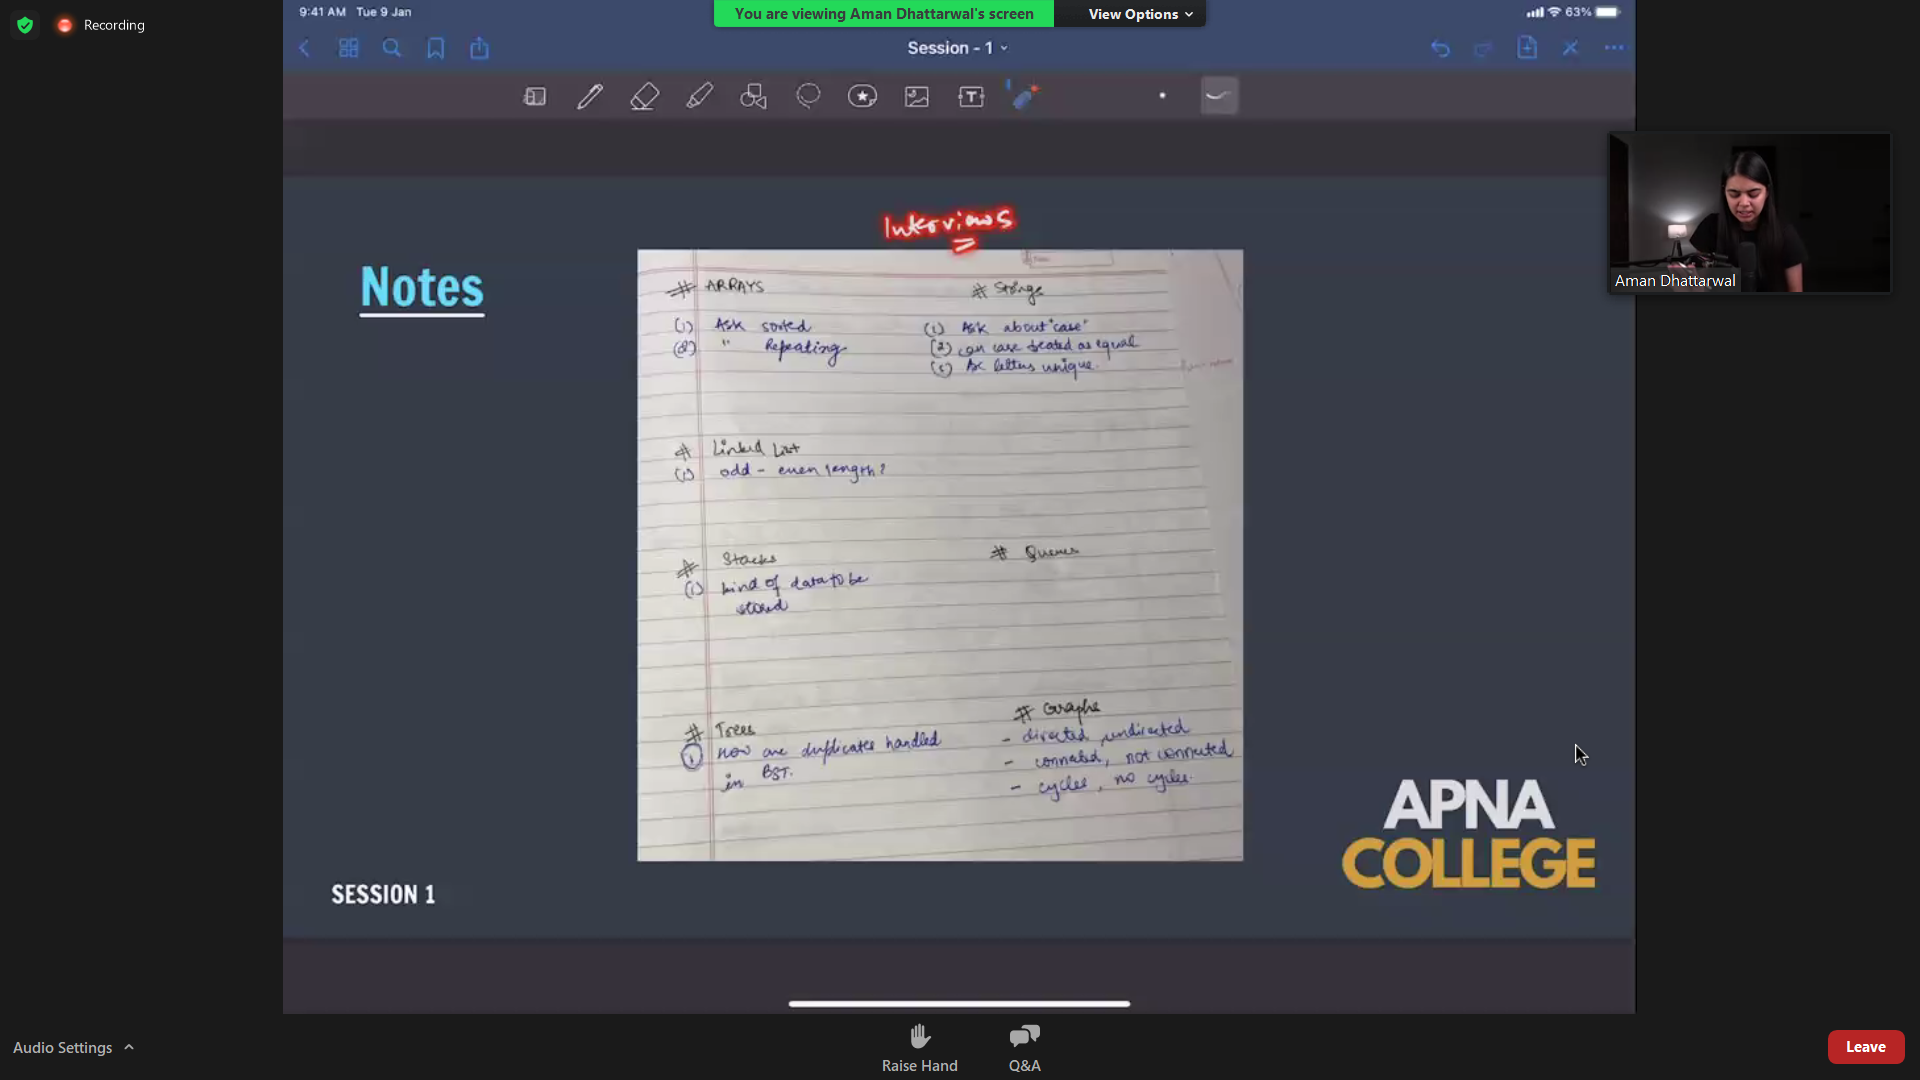 9:41 AM Tue 9 Jan
You are viewing Aman Dhattarwal's screen
View Options
63%
Recording
Session - 1
Interviews
Notes
# ARRAYS
(1) Ask sorted
(2) " Repeating
# Strings
(1) Ask about "case"
(2) can case treated as equal
(3) Are letters unique.
# Linked List
(1) odd - even length?
# Stacks
(1) kind of data to be
stored
# Queues
# Trees
(1) how are duplicates handled
in BST.
# Graphs
- directed, undirected
- connected, not connected
- cycles, no cycles.
Aman Dhattarwal
APNA
COLLEGE
SESSION 1
Audio Settings
Raise Hand
Q&A
Leave